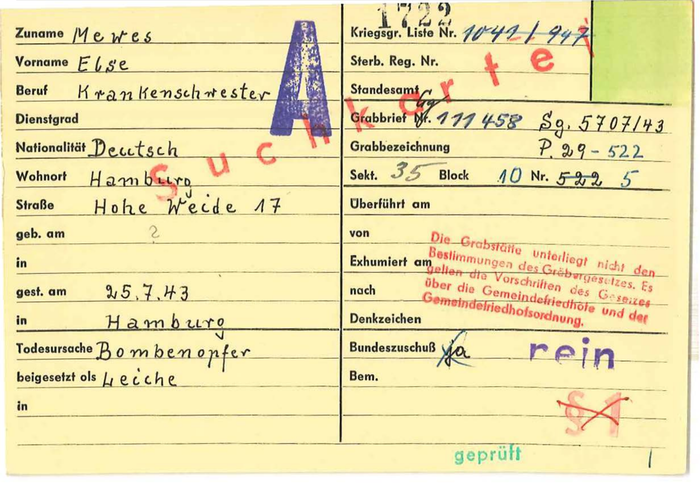 1722
Zuname Mewes
Vorname Else
Beruf Krankenschwester
Dienstgrad
Nationalität Deutsch
Wohnort Hamburg
Straße Hohe Weide 17
geb. am ?
in
gest. am 25.7.43
in Hamburg
Todesursache Bombenopfer
beigesetzt als Leiche
in
A
Suchkartei
Kriegsgr. Liste Nr. 1041/947
Sterb. Reg. Nr.
Standesamt
Grabbrief Nr. 111458 Sg. 5707/43
Grabbezeichnung P. 29-522
Sekt. 35 Block 10 Nr. 522 5
Überführt am
von
Exhumiert am
nach
Denkzeichen
Die Grabstätte unterliegt nicht den
Bestimmungen des Gräbergesetzes. Es
gelten die Vorschriften des Gesetzes
über die Gemeindefriedhöfe und der
Gemeindefriedhofsordnung.
Bundeszuschuß ja rein
Bem.
§ 1
geprüft